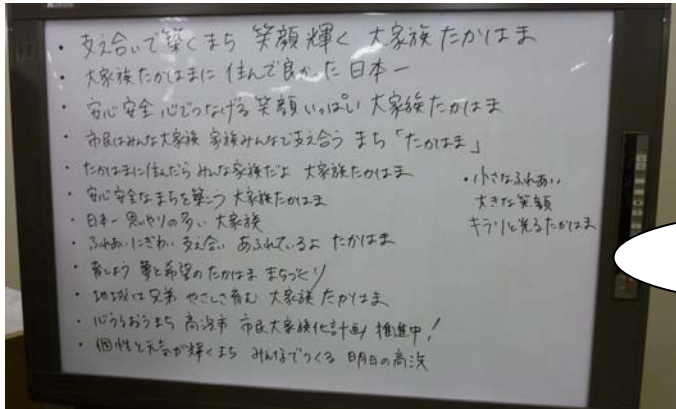 ・支え合いで築くまち 笑顔輝く 大家族たかはま
・大家族たかはまに 住んで良かった 日本一
・安心安全 心でつなげる 笑顔いっぱい 大家族たかはま
・市民はみんな大家族 家族みんなで支え合う まち「たかはま」
・たかはまに住んだら みんな家族だよ 大家族たかはま
・安心安全なまちを築こう 大家族たかはま
・日本一 思いやりの多い 大家族
・ふれあい にぎわい 支え合い あふれているよ たかはま
・育しよう 夢と希望のたかはま まちづくり
・地域は兄弟 やさしさ育む 大家族 たかはま
・心うるおうまち 高浜市 市民大家族化計画 推進中!
・個性と元気が輝くまち みんなでつくる 明日の高浜
・小さなふれあい
大きな笑顔
キラリと光るたかはま